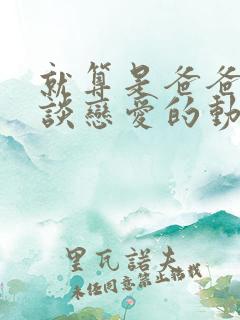 就算是爸爸
談戀愛的動
里瓦諾夫
未經同意禁止轉載